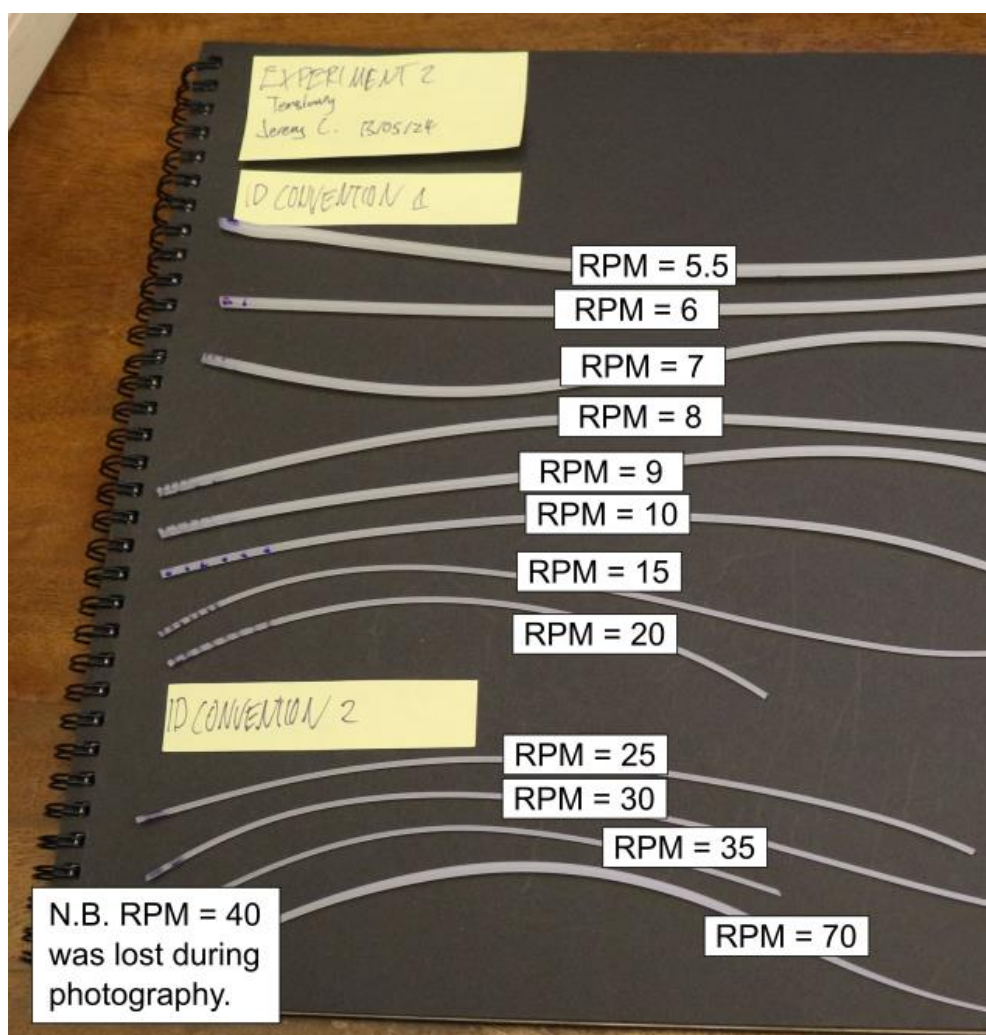 EXPERIMENT 2
Jeremy C. 13/05/24
ID CONVENTION 1
RPM = 5.5
RPM = 6
RPM = 7
RPM = 8
RPM = 9
RPM = 10
RPM = 15
RPM = 20
ID CONVENTION 2
RPM = 25
RPM = 30
RPM = 35
RPM = 70
N.B. RPM = 40
was lost during
photography.